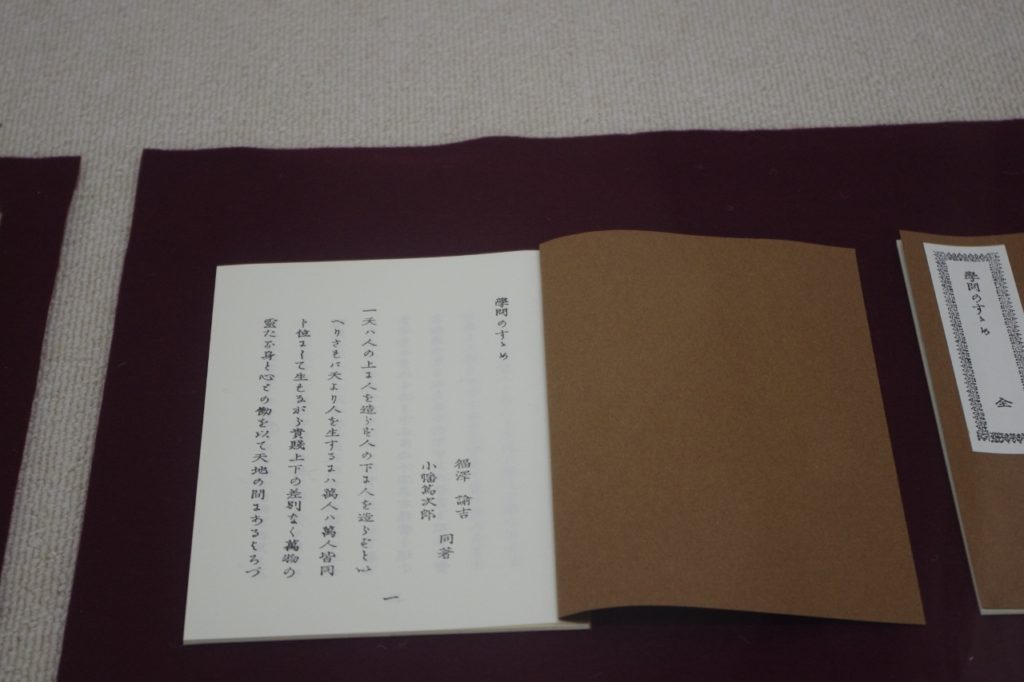 學問のすゝめ
福澤 諭吉
小幡篤次郎
同著
一天ハ人の上に人を造らず人の下に人を造らずとい
へりされバ天より人を生ずるにハ萬人ハ萬人皆同
じ位にして生れながら貴賤上下の差別なく萬物の
靈たる身と心との働を以て天地の間にあるよろづ
一
學問のすゝめ 全